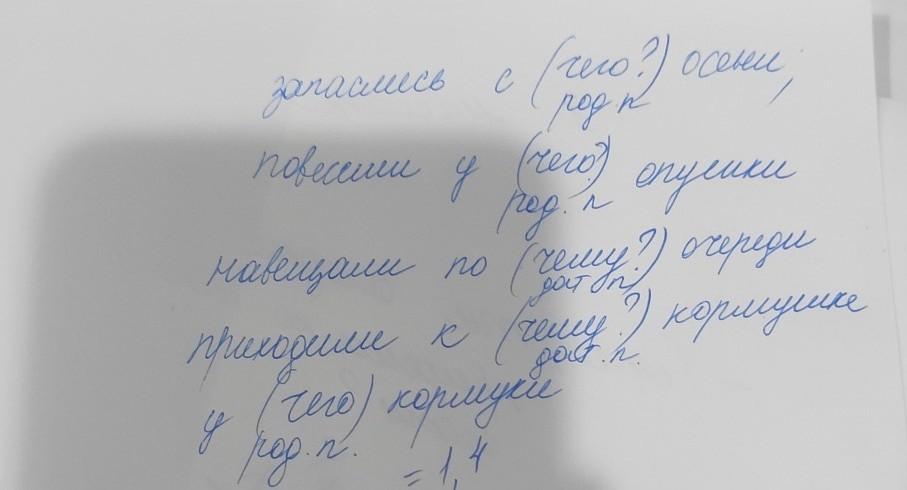 запаслись с (чего?) осени;
род. п
повесили у (чего?) опушки
род. п
навещали по (чему?) очереди
дат п
приходили к (чему?) кормушке
дат. п.
у (чего) кормуки
род. п.
= 1,4